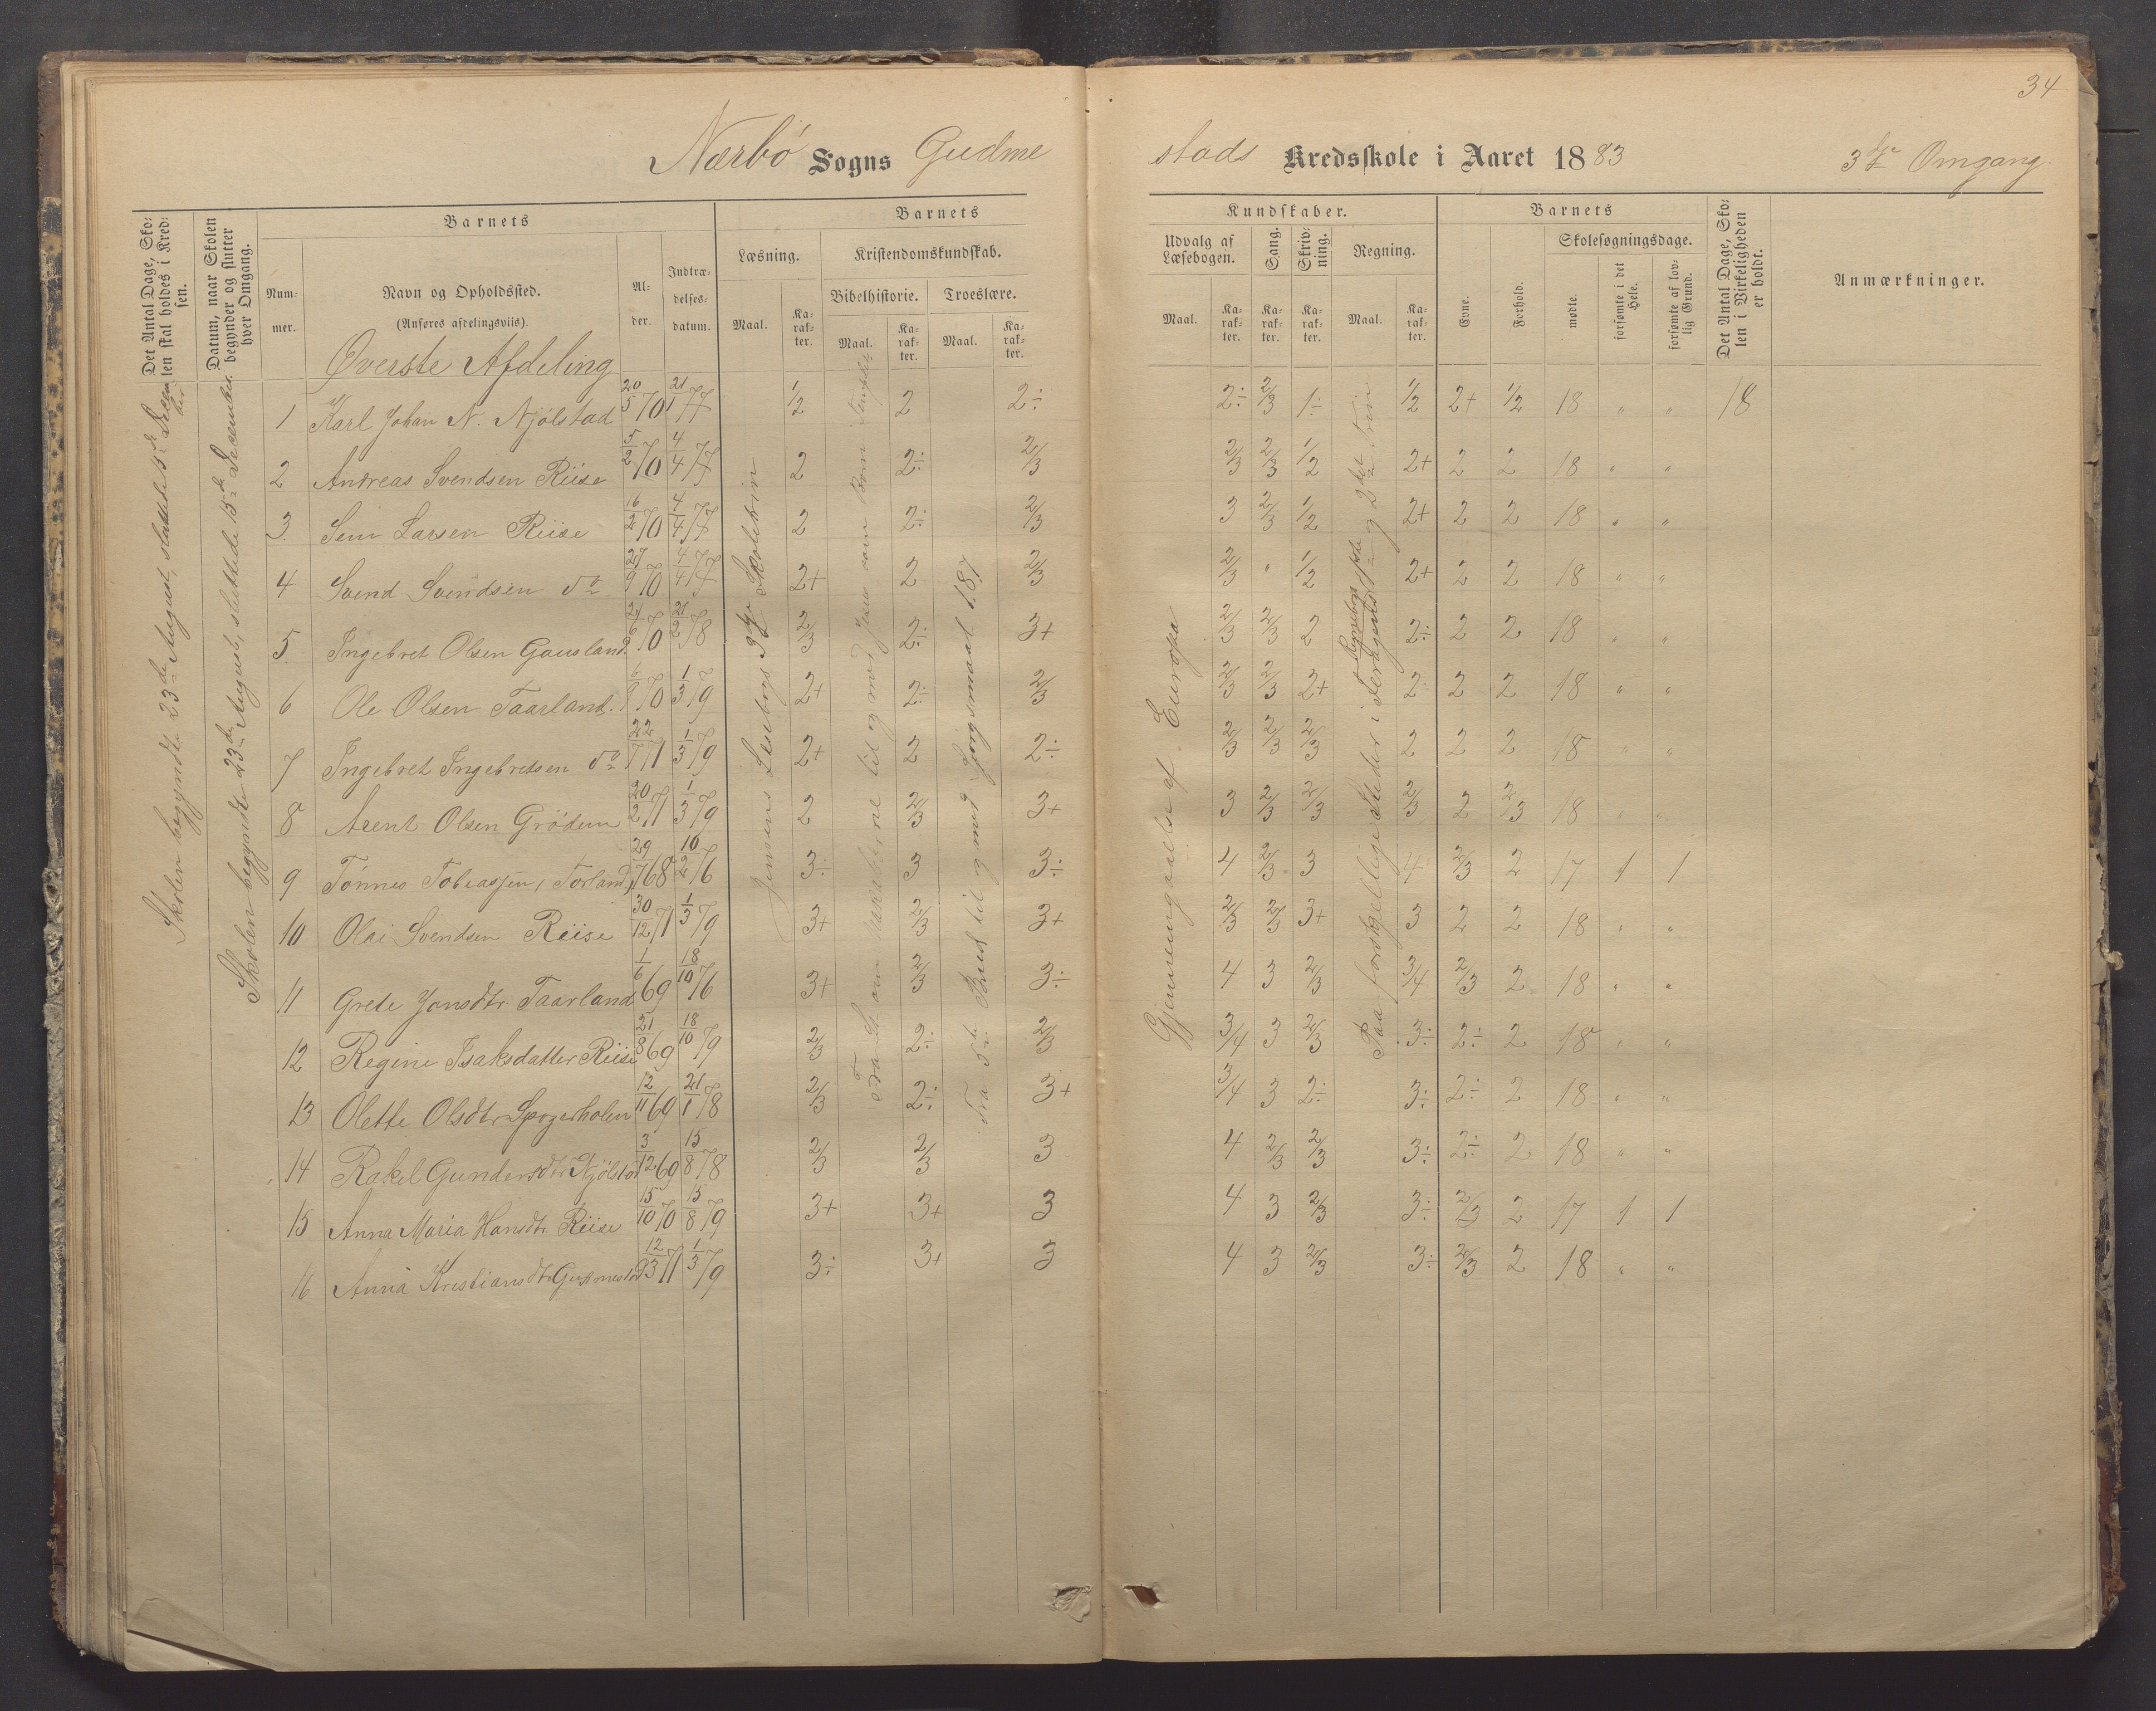 34
Nærbö Sogns Gudme
stads Kredsskole i Aaret 1883 3die Omgang.
Det Antal Dage, Sko-
len skal holdes i Kred-
sen.
Datum, naar Skolen
begynder og slutter
hver Omgang.
Barnets
Num-
mer.
Navn og Opholdssted.
(Anføres afdelingsviis).
Al-
der.
Indtræ-
delses-
datum.
Barnets
Læsning.
Maal.
Ka-
rak-
ter.
Kristendomskundskab.
Bibelhistorie.
Maal.
Ka-
rak-
ter.
Troeslære.
Maal.
Ka-
rak-
ter.
Kundskaber.
Udvalg af
Læsebogen.
Maal.
Ka-
rak-
ter.
Sang.
Ka-
rak-
ter.
Skriv-
ning.
Ka-
rak-
ter.
Regning.
Maal.
Ka-
rak-
ter.
Barnets
Evne.
Forhold.
Skolesøgningsdage.
mødte.
forsømte i det
Hele.
forsømte af lov-
lig Grund.
Det Antal Dage, Sko-
len i Virkeligheden
er holdt.
Anmærkninger.
Øverste Afdeling
Skolen begyndte 23de August, sluttede 15de December.
Skolen begyndte 23de August, sluttede 15de December.
Jensens Læsebogs 3die Skoletrin
Fra 5te Bud til og med Spørgsmaal 187
Gjennemgaaelse af Europa
1 Karl Johan N. Njölstad 20/5 70 21/1 77 1/2 2 2÷ 2÷ 2/3 1÷ 1/2 2+ 1/2 18 " " 18
2 Andreas Svendsen Riise 5/2 70 4/4 77 2 2÷ 2/3 2/3 2/3 1/2 2+ 2 2 18 " "
3 Sem Larsen Riise 16/2 70 4/4 77 2 2÷ 2/3 3 2/3 1/2 2+ 2 2 18 " "
4 Svend Svendsen do 27/9 70 4/4 77 2+ 2 2/3 2/3 " 1/2 2+ 2 2 18 " "
5 Ingebret Olsen Gausland 70 21/2 78 2/3 2÷ 3+ 2/3 2/3 2 2÷ 2 2 18 " "
6 Ole Olsen Taarland. 70 1/3 79 2+ 2÷ 2/3 2/3 2/3 2+ 2 2 2 18 " "
7 Ingebret Ingebretsen do 22/7 71 1/3 79 2+ 2 2÷ 2/3 2/3 2/3 2 2 2 18 " "
8 Arent Olsen Grödem 20/2 71 1/3 79 2 2/3 3+ 3 2/3 2/3 2/3 2 2/3 18 " "
9 Tönnes Tobiassen, Torland, 29/7 68 10/2 76 3÷ 3 3÷ 4 2/3 3 4 2/3 2 17 1 1
10 Olai Svendsen Riise 30/12 71 1/3 79 3+ 2/3 3+ 2/3 2/3 3+ 3 2 2 18 " "
11 Grete Jonsdtr. Taarland 1/6 69 18/10 76 3+ 2/3 3÷ 4 3 2/3 3/4 2/3 2 18 " "
12 Regine Isaksdatter Riise 21/8 69 18/10 79 2/3 2÷ 2/3 3/4 3 2/3 3÷ 2÷ 2 18 " "
13 Olette Olsdtr. 12/11 69 21/1 78 2/3 2÷ 3+ 3/4 3 2÷ 3÷ 2÷ 2 18 " "
14 Rakel Gundersdtr. Njölstad 3/12 69 15/8 78 2/3 2/3 3 4 2/3 2/3 3÷ 2÷ 2 18 " "
15 Anna Maria Hansdtr. Riise 15/10 70 15/8 79 3+ 3+ 3 4 3 2/3 3÷ 2/3 2 17 1 1
16 Anna Kristiansdtr Gudmestad 12/3 71 1/3 79 3÷ 3+ 3 4 3 2/3 3÷ 2/3 2 18 " "